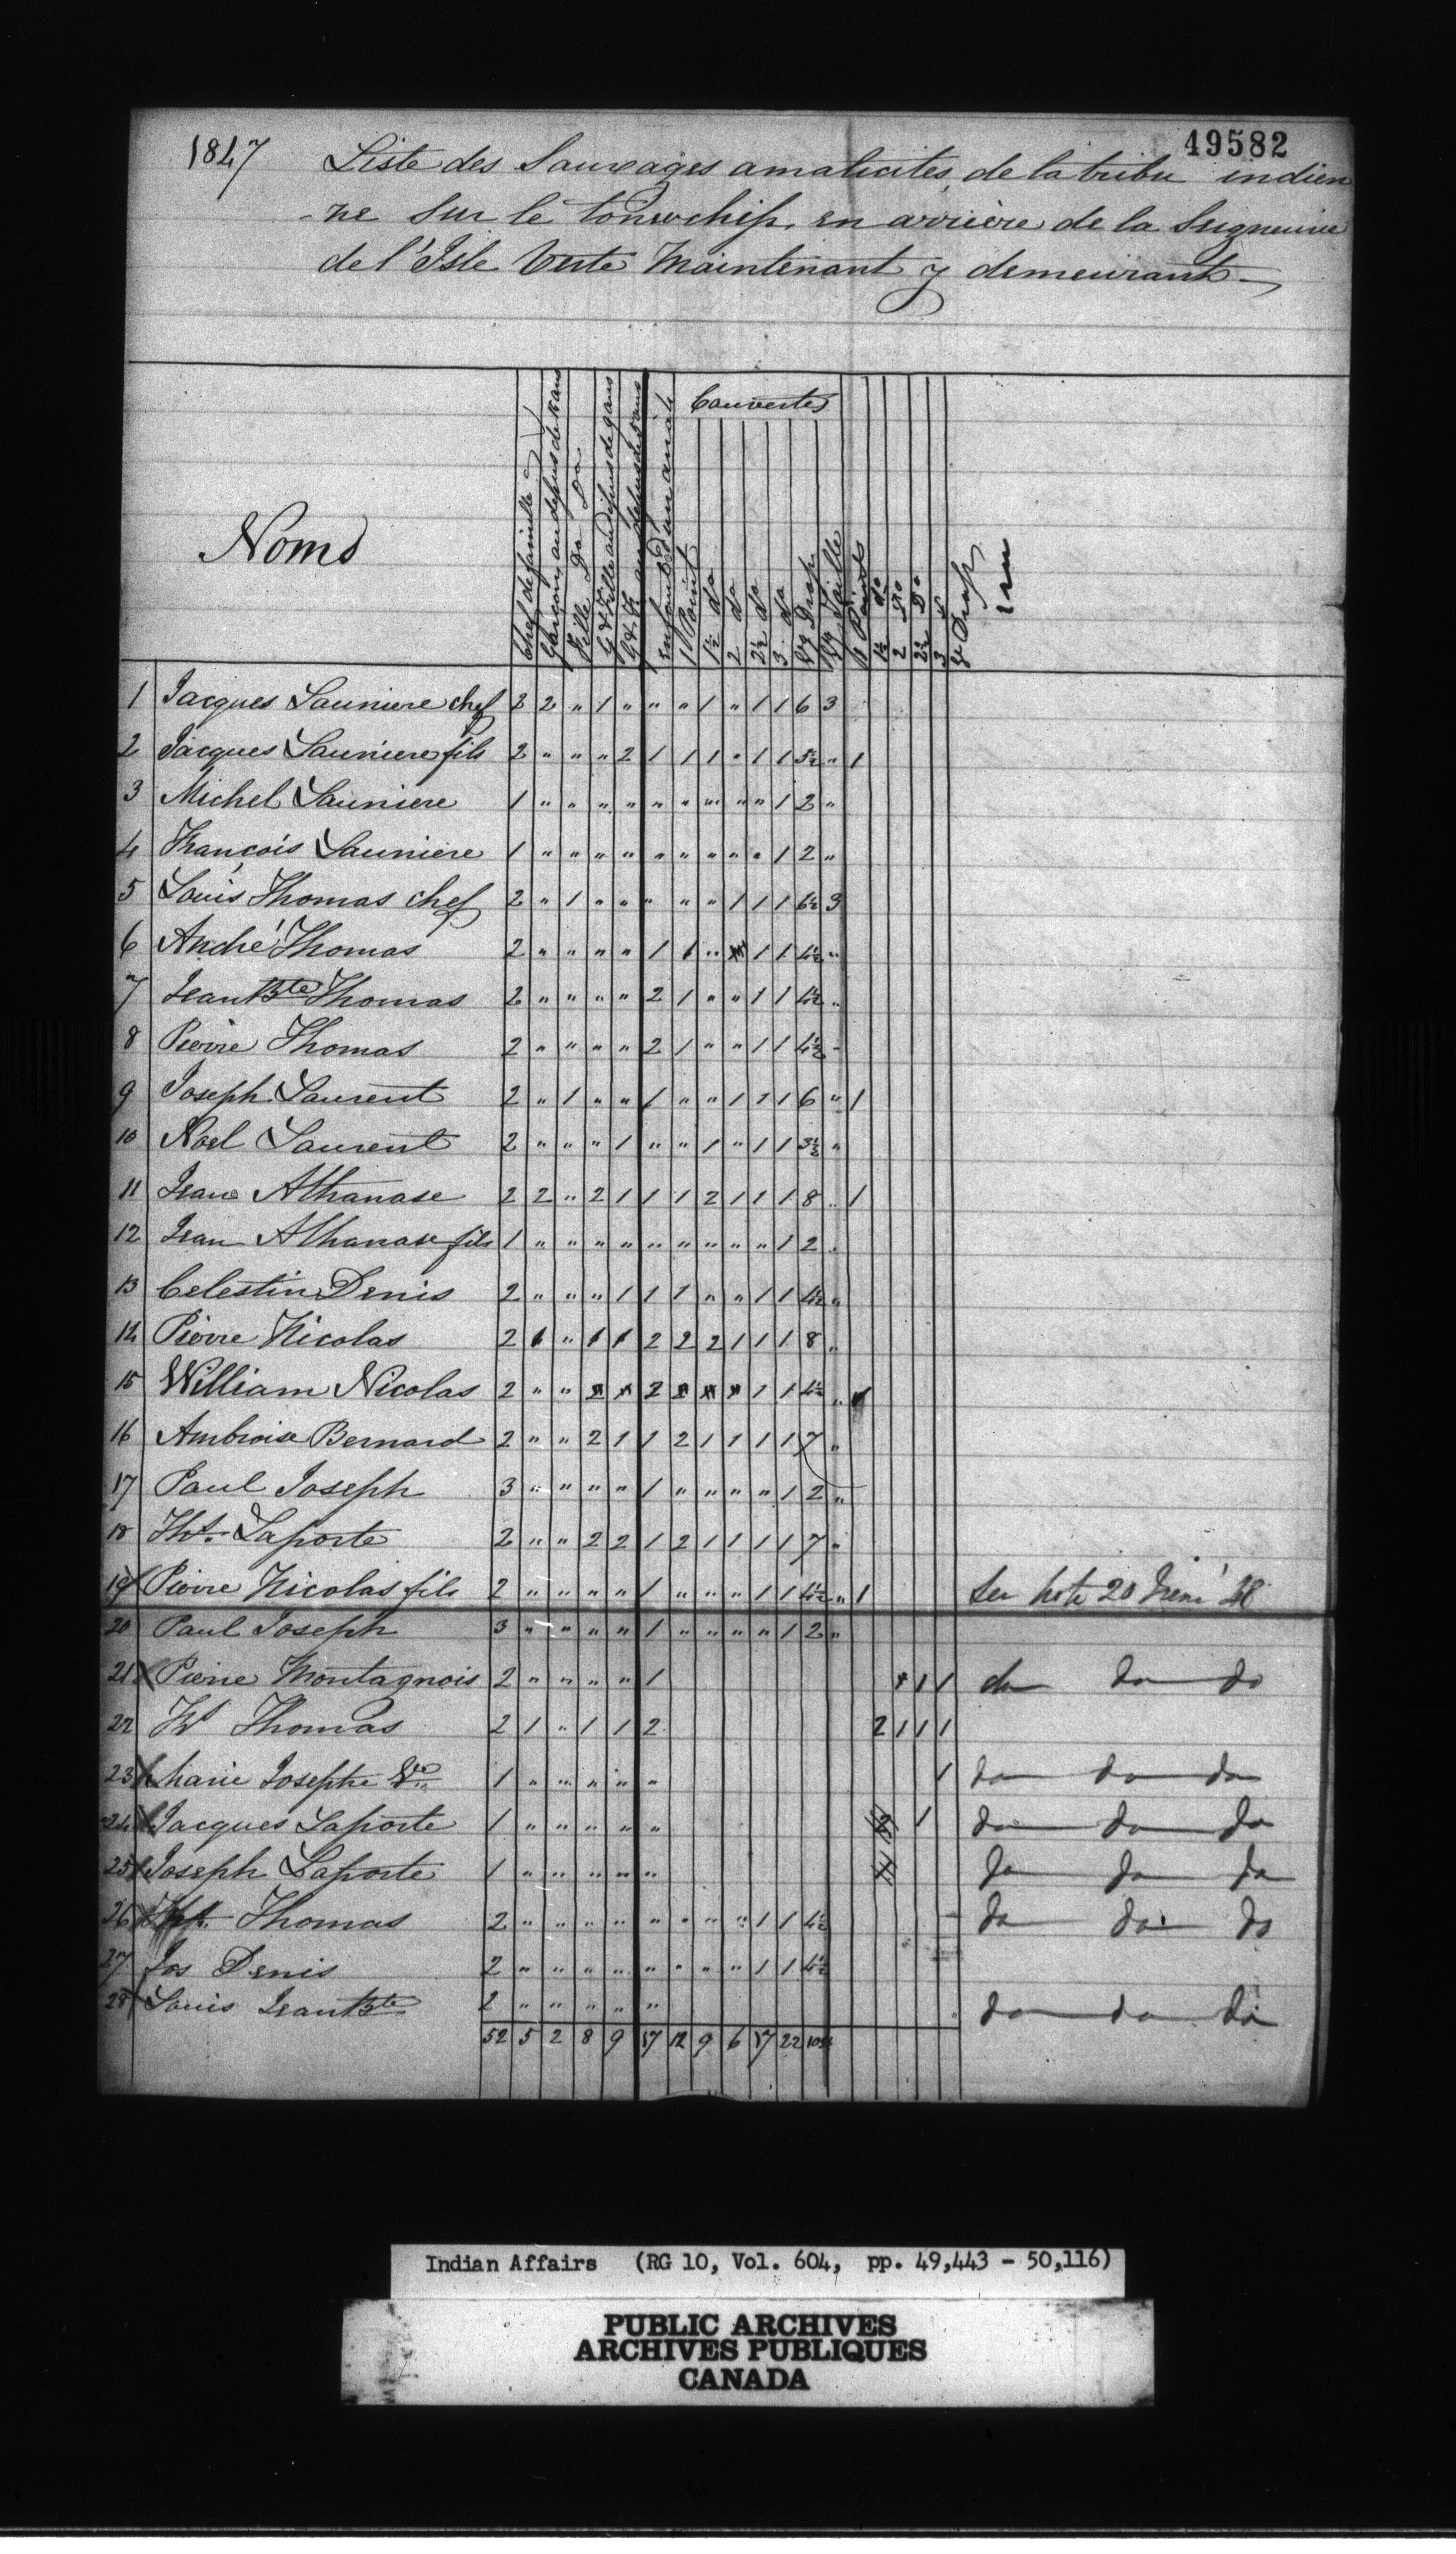 1847
49582
Liste des Sauvages amalicites, de la tribu indien
-ne sur le townschip, en arrière de la Seigneurie
de l'Isle Verte Maintenant y demeurant
Noms
Chef de famille
Garçons au dessus de ans
Fille Do Do
G & Fille au dessus de 9 ans
G & F
Enfants d'un an à 4
Couvertes
1 Point
1½ do
2 do
2½ do
3 do
Vg Drap
Taille
1 Points
1½ do
2 Do
2½ Do
3
Drap
1 Jacques Launiere chef 2 2 " 1 " " " 1 " 1 1 6 3
2 Jacques Launiere fils 2 " " " 2 1 1 1 " 1 1 5½ " 1
3 Michel Launiere 1 " " " " " " " " " 1 2 "
4 François Launiere 1 " " " " " " " " " 1 2 "
5 Louis Thomas chef 2 " 1 " " " " " 1 1 1 6½ 3
6 André Thomas 2 " " " " 1 1 " 1 1 4½ "
7 Jean Bte Thomas 2 " " " " 2 1 " " 1 1 4½ "
8 Pierre Thomas 2 " " " " 2 1 " " 1 1 4½ "
9 Joseph Laurent 2 " 1 " " 1 " " 1 1 1 6 " 1
10 Noel Laurent 2 " " " 1 " " 1 " 1 1 3½ "
11 Jean Athanase 2 2 " 2 1 1 1 2 1 1 1 8 " 1
12 Jean Athanase fils 1 " " " " " " " " " 1 2 "
13 Celestin Denis 2 " " " 1 1 1 " " 1 1 4½ "
14 Pierre Nicolas 2 1 " 1 1 2 2 2 1 1 1 8 "
15 William Nicolas 2 " " 2 1 1 4½ "
16 Ambroise Bernard 2 " " 2 1 1 2 1 1 1 1 7 "
17 Paul Joseph 3 " " " " 1 " " " " 1 2 "
18 Laporte 2 " " 2 2 1 2 1 1 1 1 7 "
19 Pierre Nicolas fils 2 " " " " 1 " " " 1 1 4½ " 1 See note 20 48
20 Paul Joseph 3 " " " " 1 " " " " 1 2 "
21 Pierre Montagnois 2 " " " " 1 1 1 do do do
22 Thomas 2 1 " 1 1 2 2 1 1 1
23 Marie Josephe Ve 1 " " " " " 1 do do do
24 Jacques Laporte 1 " " " " " 1 do do do
25 Joseph Laporte 1 " " " " " do do do
26 Thomas 2 " " " " " " " " 1 1 4½ do do do
27 Jos Denis 2 " " " " " " " " 1 1 4½
28 Louis Jean Bte 2 " " " " " do do do
52 5 2 8 9 17 12 9 6 17 22
Indian Affairs (RG 10, Vol. 604, pp. 49,443 - 50,116)
PUBLIC ARCHIVES
ARCHIVES PUBLIQUES
CANADA